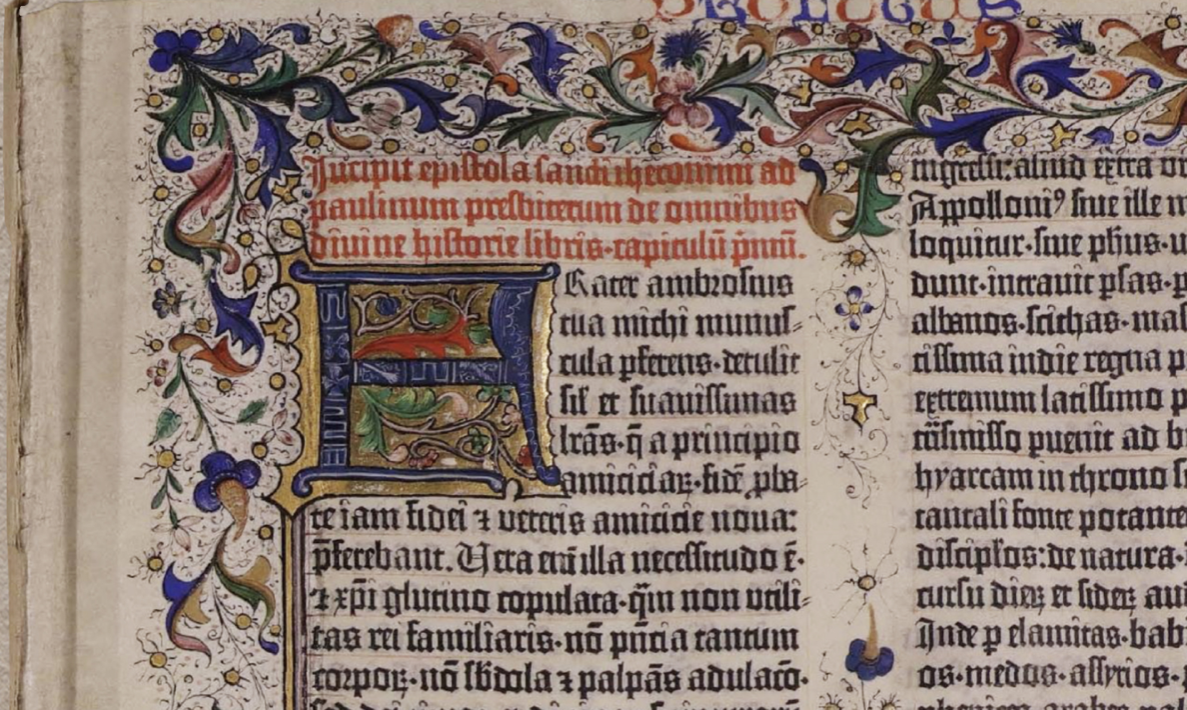 PROLOGUS
Incipit epistola sancti iheronimi ad
paulinum presbiterum de omnibus
divine historie libris·capitulū p̄mū.
FRater ambrosius
tua michi munus-
cula ꝑferens·detulit
sił et suavissimas
lrās·q̄ a principio
amiciciaꝝ·fidē ꝓba-
te iam fidei ⁊ veteris amicicie nova:
p̄ferebant. Vera eni illa necessitudo ē·
⁊ xp̄i glutino copulata·q̄m non utili-
tas rei familiaris·nō pn̄cia tantum
corpoꝝ·nō sb̓dola ⁊ palpās adulacō·
ingressus: aliud extra
Appolloniꝰ sive ille
loquitur·sive ph̄us·
dunt·intravit ꝑsas·
albanos·scithas·
tissima indie regna
extremum latissimo
trāsmisso ꝑvenit ad
hyarcam in throno
tantali fonte
disciplos: de natura·
cursu dieꝝ et sideꝝ
Inde ꝑ elamitas·
os·medos·assyrios·